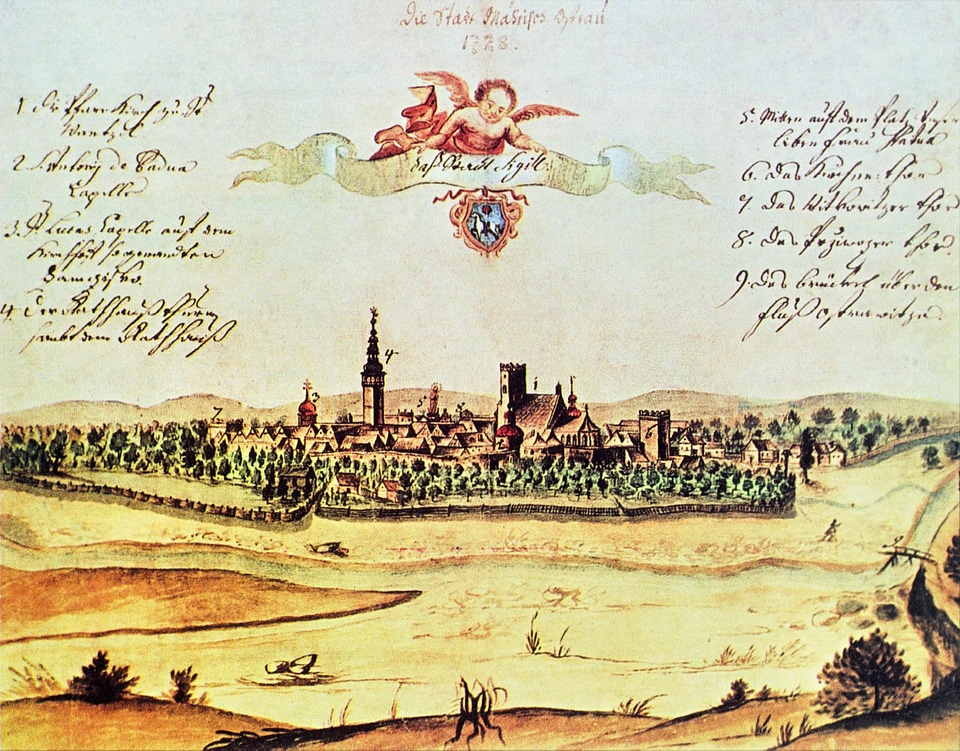 Die Stadt Mährisch Ostrau
1728.
das Stadt Sigil:
1. Die Pfarr Kirch zu St
Wentzel
2. S. Antonÿ de Padua
Capelle
3. St Lucas Capelle auf dem
Kirchhof so genandten
4. Der Rathhauß thurm
sambt dem Rathhauß
5. Mitten auf dem Platz
lieben Frau Statua
6. das Kirchen thor
7. das Witkowitzer thor
8. das Przivozer thor.
9. das brückel über den
fluß Ostrawitza.
4
3
5
7
9